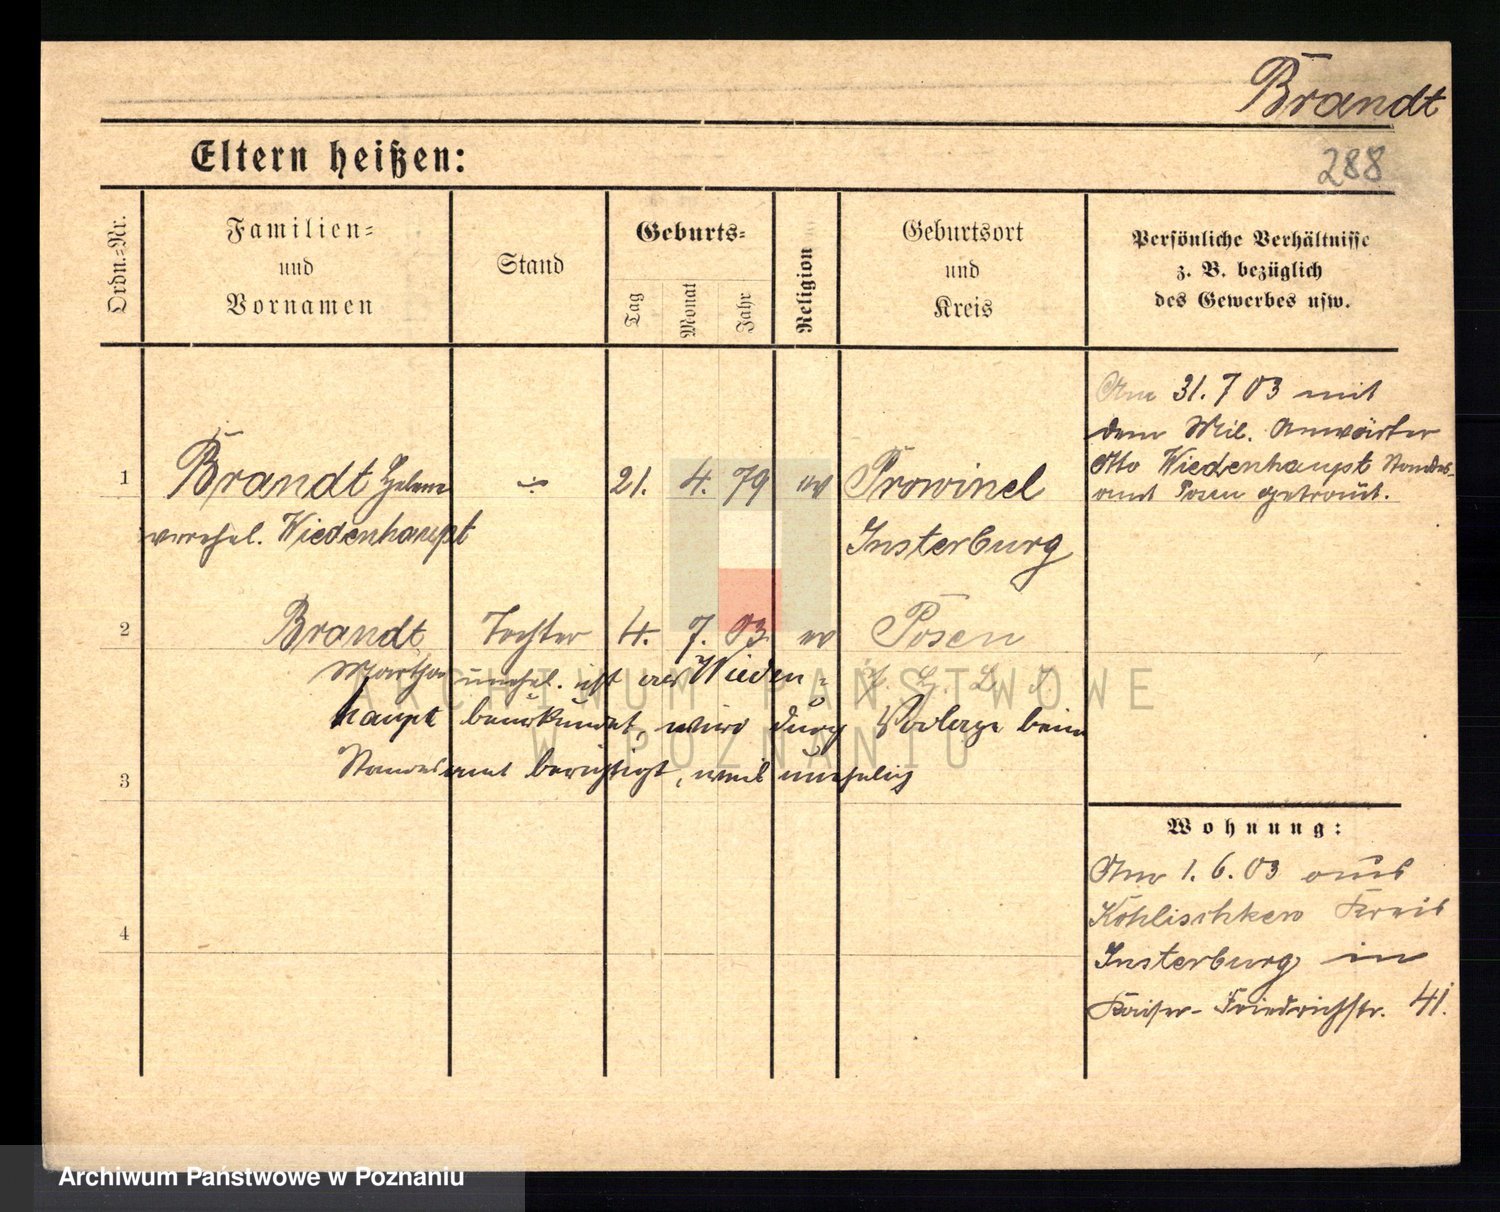 Brandt
Eltern heißen:
288
Ordn.-Nr.
Familien-
und
Vornamen
Stand
Geburts-
Tag
Monat
Jahr
Religion
Geburtsort
und
Kreis
Persönliche Verhältnisse
z. B. bezüglich
des Gewerbes usw.
Am 31. 7 03 mit
dem Mil. Anwärter
Otto Wiedenhaupt Standes-
amt Posen getraut.
1 Brandt Helene 21. 4. 79 ev Prowinel
verehel. Wiedenhaupt Insterburg
2 Brandt Tochter 4. 7. 03. ev Posen
Martha unehel. ist als Wieden-
haupt beurkundet, wird durch Vorlage beim
Standesamt berichtigt, weil unehelich
3
4
Wohnung:
Am 1. 6. 03 aus
Kohlischken Kreis
Insterburg in
Kaiser-Friedrichstr. 41.
ARCHIWUM PAŃSTWOWE
W POZNANIU
Archiwum Państwowe w Poznaniu